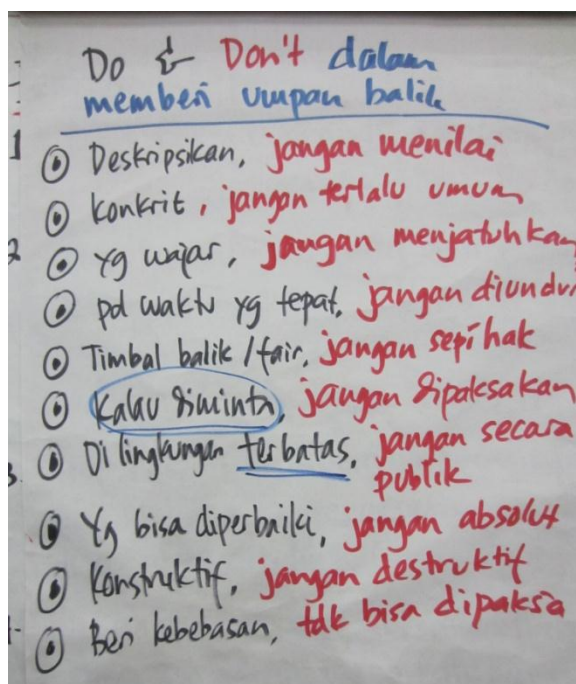 Do & Don't dalam
memberi umpan balik
Deskripsikan, jangan menilai
Konkrit, jangan terlalu umum
Yg wajar, jangan menjatuhkan
pd waktu yg tepat, jangan diundur
Timbal balik / fair, jangan sepihak
Kalau diminta, jangan dipaksakan
Di lingkungan terbatas, jangan secara
publik
Yg bisa diperbaiki, jangan absolut
Konstruktif, jangan destruktif
Beri kebebasan, tdk bisa dipaksa